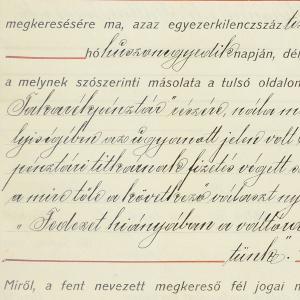 megkeresésére ma, azaz egyezerkilenczszáz
hó huszonnegyedik napján, dél
a melynek szószerinti másolata a tulsó oldalon
Takarékpénztár" részére, nála m
lyiségében az ugyanott jelen volt
pénztári titkárnak fizetés végett
a mire tőle a következő választ ny
"Fedezet hiányában a váltó
tünk".
Miről, a fent nevezett megkereső fél jogai